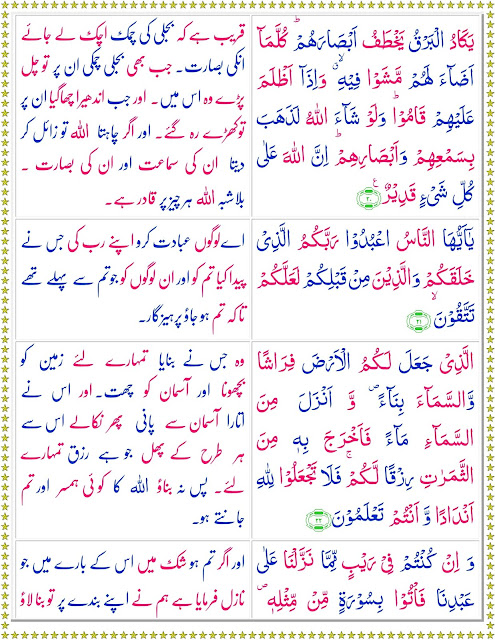 یَکَادُ الْبَرْقُ یَخْطَفُ اَبْصَارَھُمْ ؕ کُلَّمَاۤ
اَضَآءَ لَھُمْ مَّشَوْا فِیْہِ ۙ وَاِذَاۤ اَظْلَمَ
عَلَیْھِمْ قَامُوْا ؕ وَلَوْ شَآءَ اللّٰہُ لَذَھَبَ
بِسَمْعِھِمْ وَاَبْصَارِھِمْ ؕ اِنَّ اللّٰہَ عَلٰی
کُلِّ شَیْءٍ قَدِیْرٌ ۲۰
قریب ہے کہ بجلی کی چمک اچک لے جائے
انکی بصارت۔ جب بھی بجلی چمکی ان پر تو چل
پڑے وہ اس میں۔ اور جب اندھیرا چھا گیا ان پر
تو کھڑے رہ گئے۔ اور اگر چاہتا اللہ تو زائل کر
دیتا ان کی سماعت اور ان کی بصارت ۔
بلاشبہ اللہ ہر چیز پر قادر ہے۔
یٰۤاَیُّھَا النَّاسُ اعْبُدُوْا رَبَّکُمُ الَّذِیْ
خَلَقَکُمْ وَالَّذِیْنَ مِنْ قَبْلِکُمْ لَعَلَّکُمْ
تَتَّقُوْنَ ۙ ۲۱
اے لوگوں عبادت کرو اپنے رب کی جس نے
پیدا کیا تم کو اور ان لوگوں کو جو تم سے پہلے تھے
تا کہ تم ہو جاؤ پرہیزگار۔
الَّذِیْ جَعَلَ لَکُمُ الْاَرْضَ فِرَاشًا
وَّالسَّمَآءَ بِنَآءً ۪ وَّ اَنْزَلَ مِنَ
السَّمَآءِ مَآءً فَاَخْرَجَ بِہٖ مِنَ
الثَّمَرٰتِ رِزْقًا لَّکُمْ ۚ فَلَا تَجْعَلُوْا لِلّٰہِ
اَنْدَادًا وَّ اَنْتُمْ تَعْلَمُوْنَ ۲۲
وہ جس نے بنایا تمہارے لئے زمین کو
بچھونا اور آسمان کو چھت۔ اور اس نے
اتارا آسمان سے پانی پھر نکالے اس سے
ہر طرح کے پھل جو ہے رزق تمہارے
لئے۔ پس نہ بناؤ اللہ کا کوئی ہمسر اور تم
جانتے ہو۔
وَ اِنْ کُنْتُمْ فِیْ رَیْبٍ مِّمَّا نَزَّلْنَا عَلٰی
عَبْدِنَا فَاْتُوْا بِسُوْرَۃٍ مِّنْ مِّثْلِہٖ ۪
اور اگر تم ہو شک میں اس کے بارے میں جو
نازل فرمایا ہے ہم نے اپنے بندے پر تو بنا لاؤ